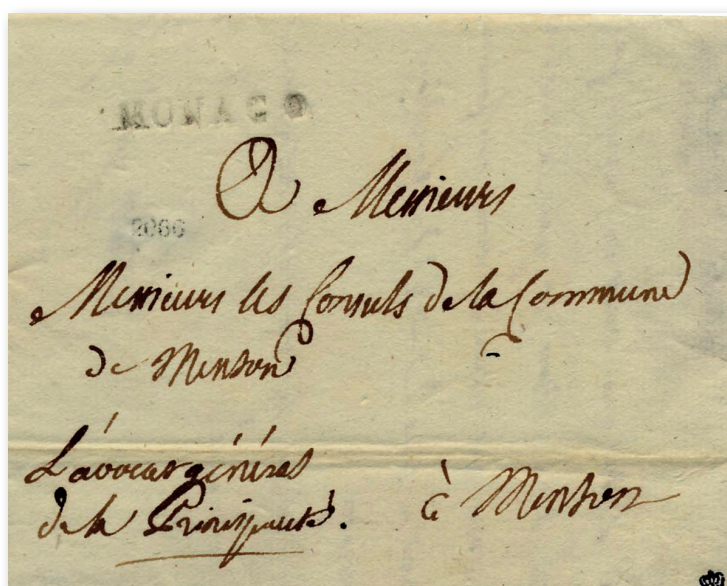 MONACO
A Messieurs
2066
Messieurs les Consuls de la Commune
de Menton
L'avocat général
de la Principauté.
à Menton